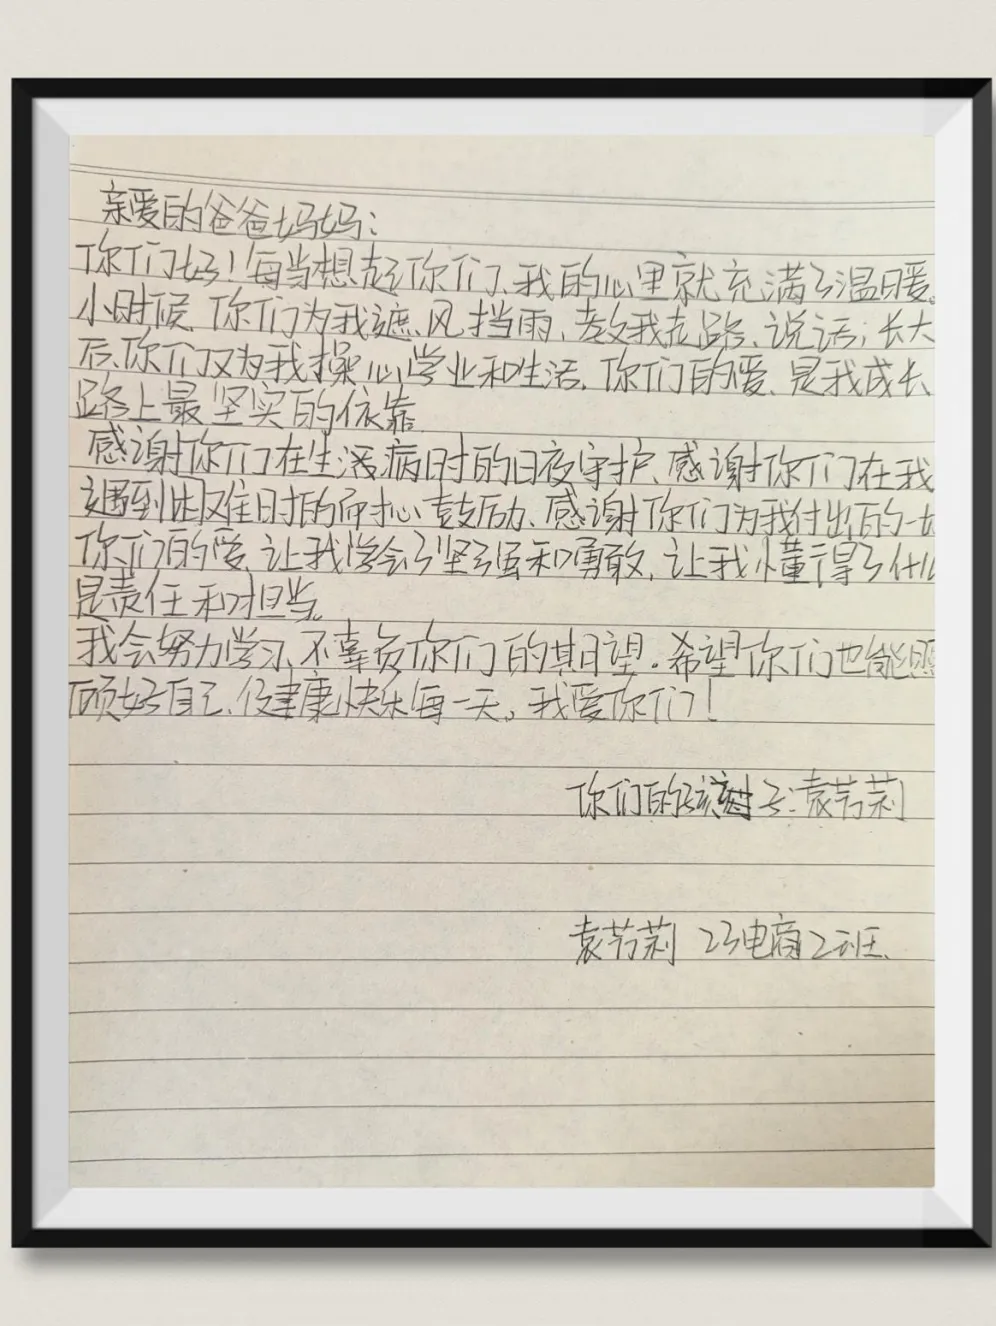 亲爱的爸爸妈妈：
你们好！每当想起你们、我的心里就充满了温暖。
小时候、你们为我遮风挡雨、教我走路、说话；长大
后、你们又为我操心学业和生活、你们的爱、是我成长
路上最坚实的依靠
感谢你们在生活病时的日夜守护、感谢你们在我
遇到困难时的耐心鼓励、感谢你们为我付出的一切
你们的爱、让我学会了坚强和勇敢、让我懂得了什么
是责任和担当。
我会努力学习、不辜负你们的期望。希望你们也能照
顾好自己、健康快乐每一天。我爱你们！
你们的孩子：袁艿莉
袁艿莉 23电商2班、